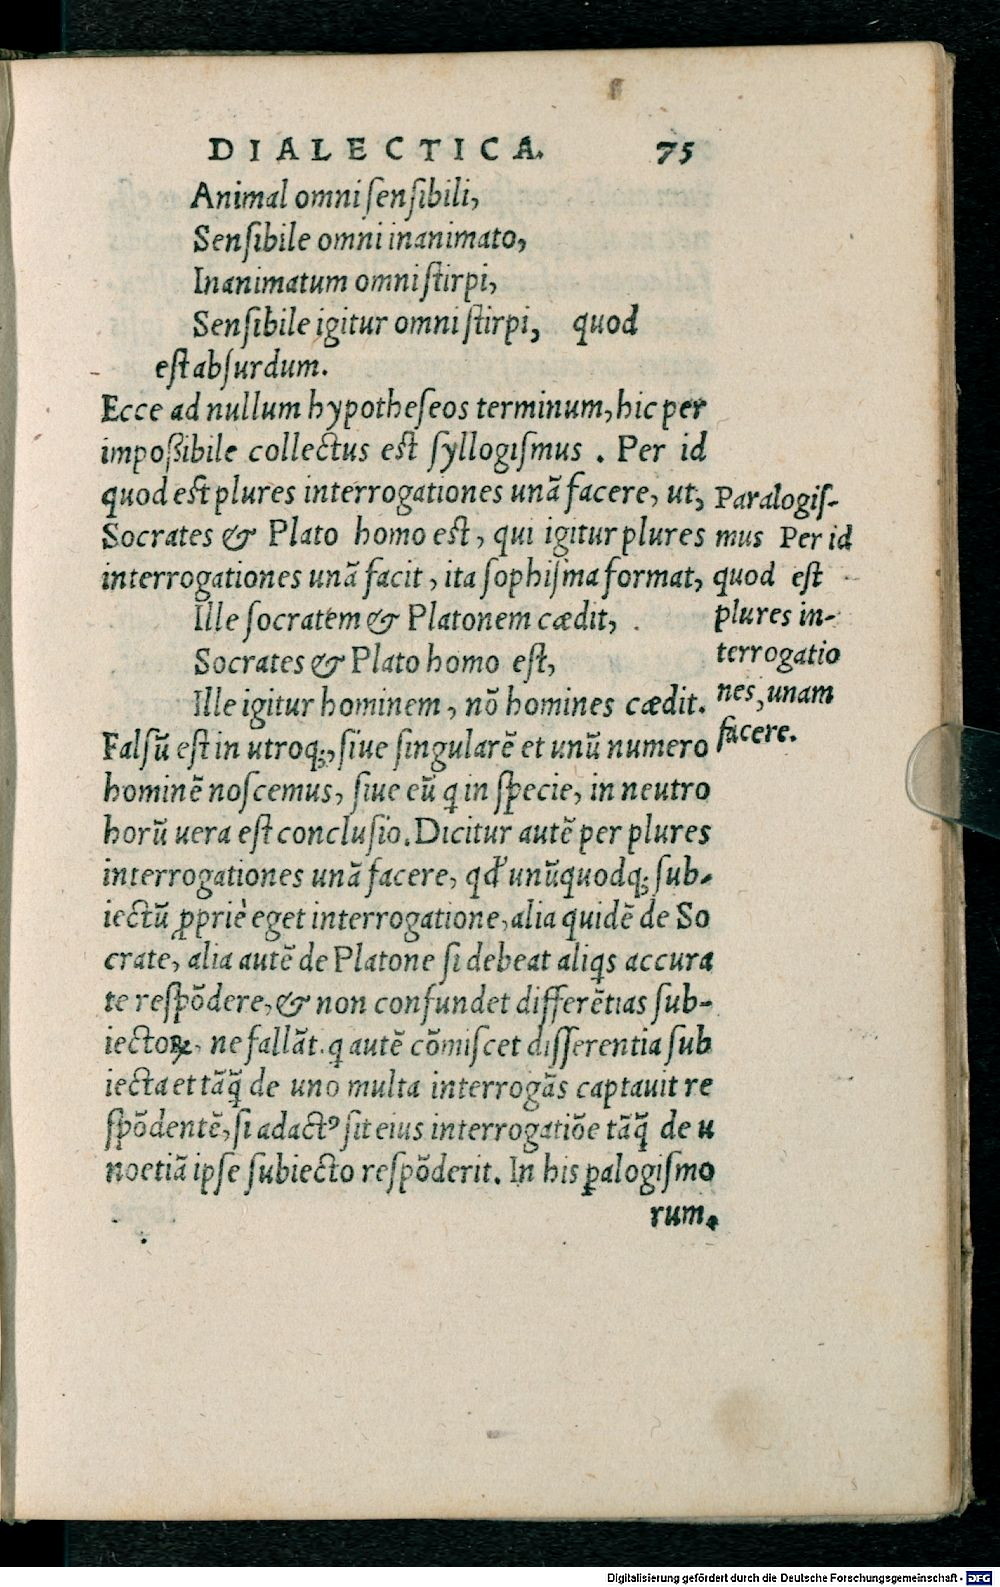 DIALECTICA. 75
Animal omni ſenſibili,
Senſibile omni inanimato,
Inanimatum omni ſtirpi,
Senſibile igitur omni ſtirpi, quod
eſt abſurdum.
Ecce ad nullum hypotheſeos terminum, hic per
impoßibile collectus eſt ſyllogiſmus. Per id
quod eſt plures interrogationes unā facere, ut,
Socrates & Plato homo eſt, qui igitur plures
interrogationes unā facit, ita ſophiſma format,
Ille ſocratem & Platonem cædit,
Socrates & Plato homo eſt,
Ille igitur hominem, nō homines cædit.
Falſū eſt in utroq;, ſiue ſingularē et unū numero
hominē noſcemus, ſiue eū q̇ in ſpecie, in neutro
horū uera eſt concluſio. Dicitur autē per plures
interrogationes unā facere, qd̛ unūquodq; ſub-
iectū ꝓpriè eget interrogatione, alia quidē de So
crate, alia autē de Platone ſi debeat aliqs accura
te reſpōdere, & non confundet differētias ſub-
iectoꝝ, ne fallāt. q autē cōmiſcet differentia ſub
iecta et tāq̃ de uno multa interrogās captauit re
ſpōdentē, ſi adactꝰ ſit eius interrogatiōe tāq̃ de u
no etiā ipſe ſubiecto reſpōderit. In his ꝑalogiſmo
rum.
Paralogiſ-
mus Per id
quod eſt
plures in-
terrogatio
nes, unam
facere.
Digitalisierung gefördert durch die Deutsche Forschungsgemeinschaft - DFG